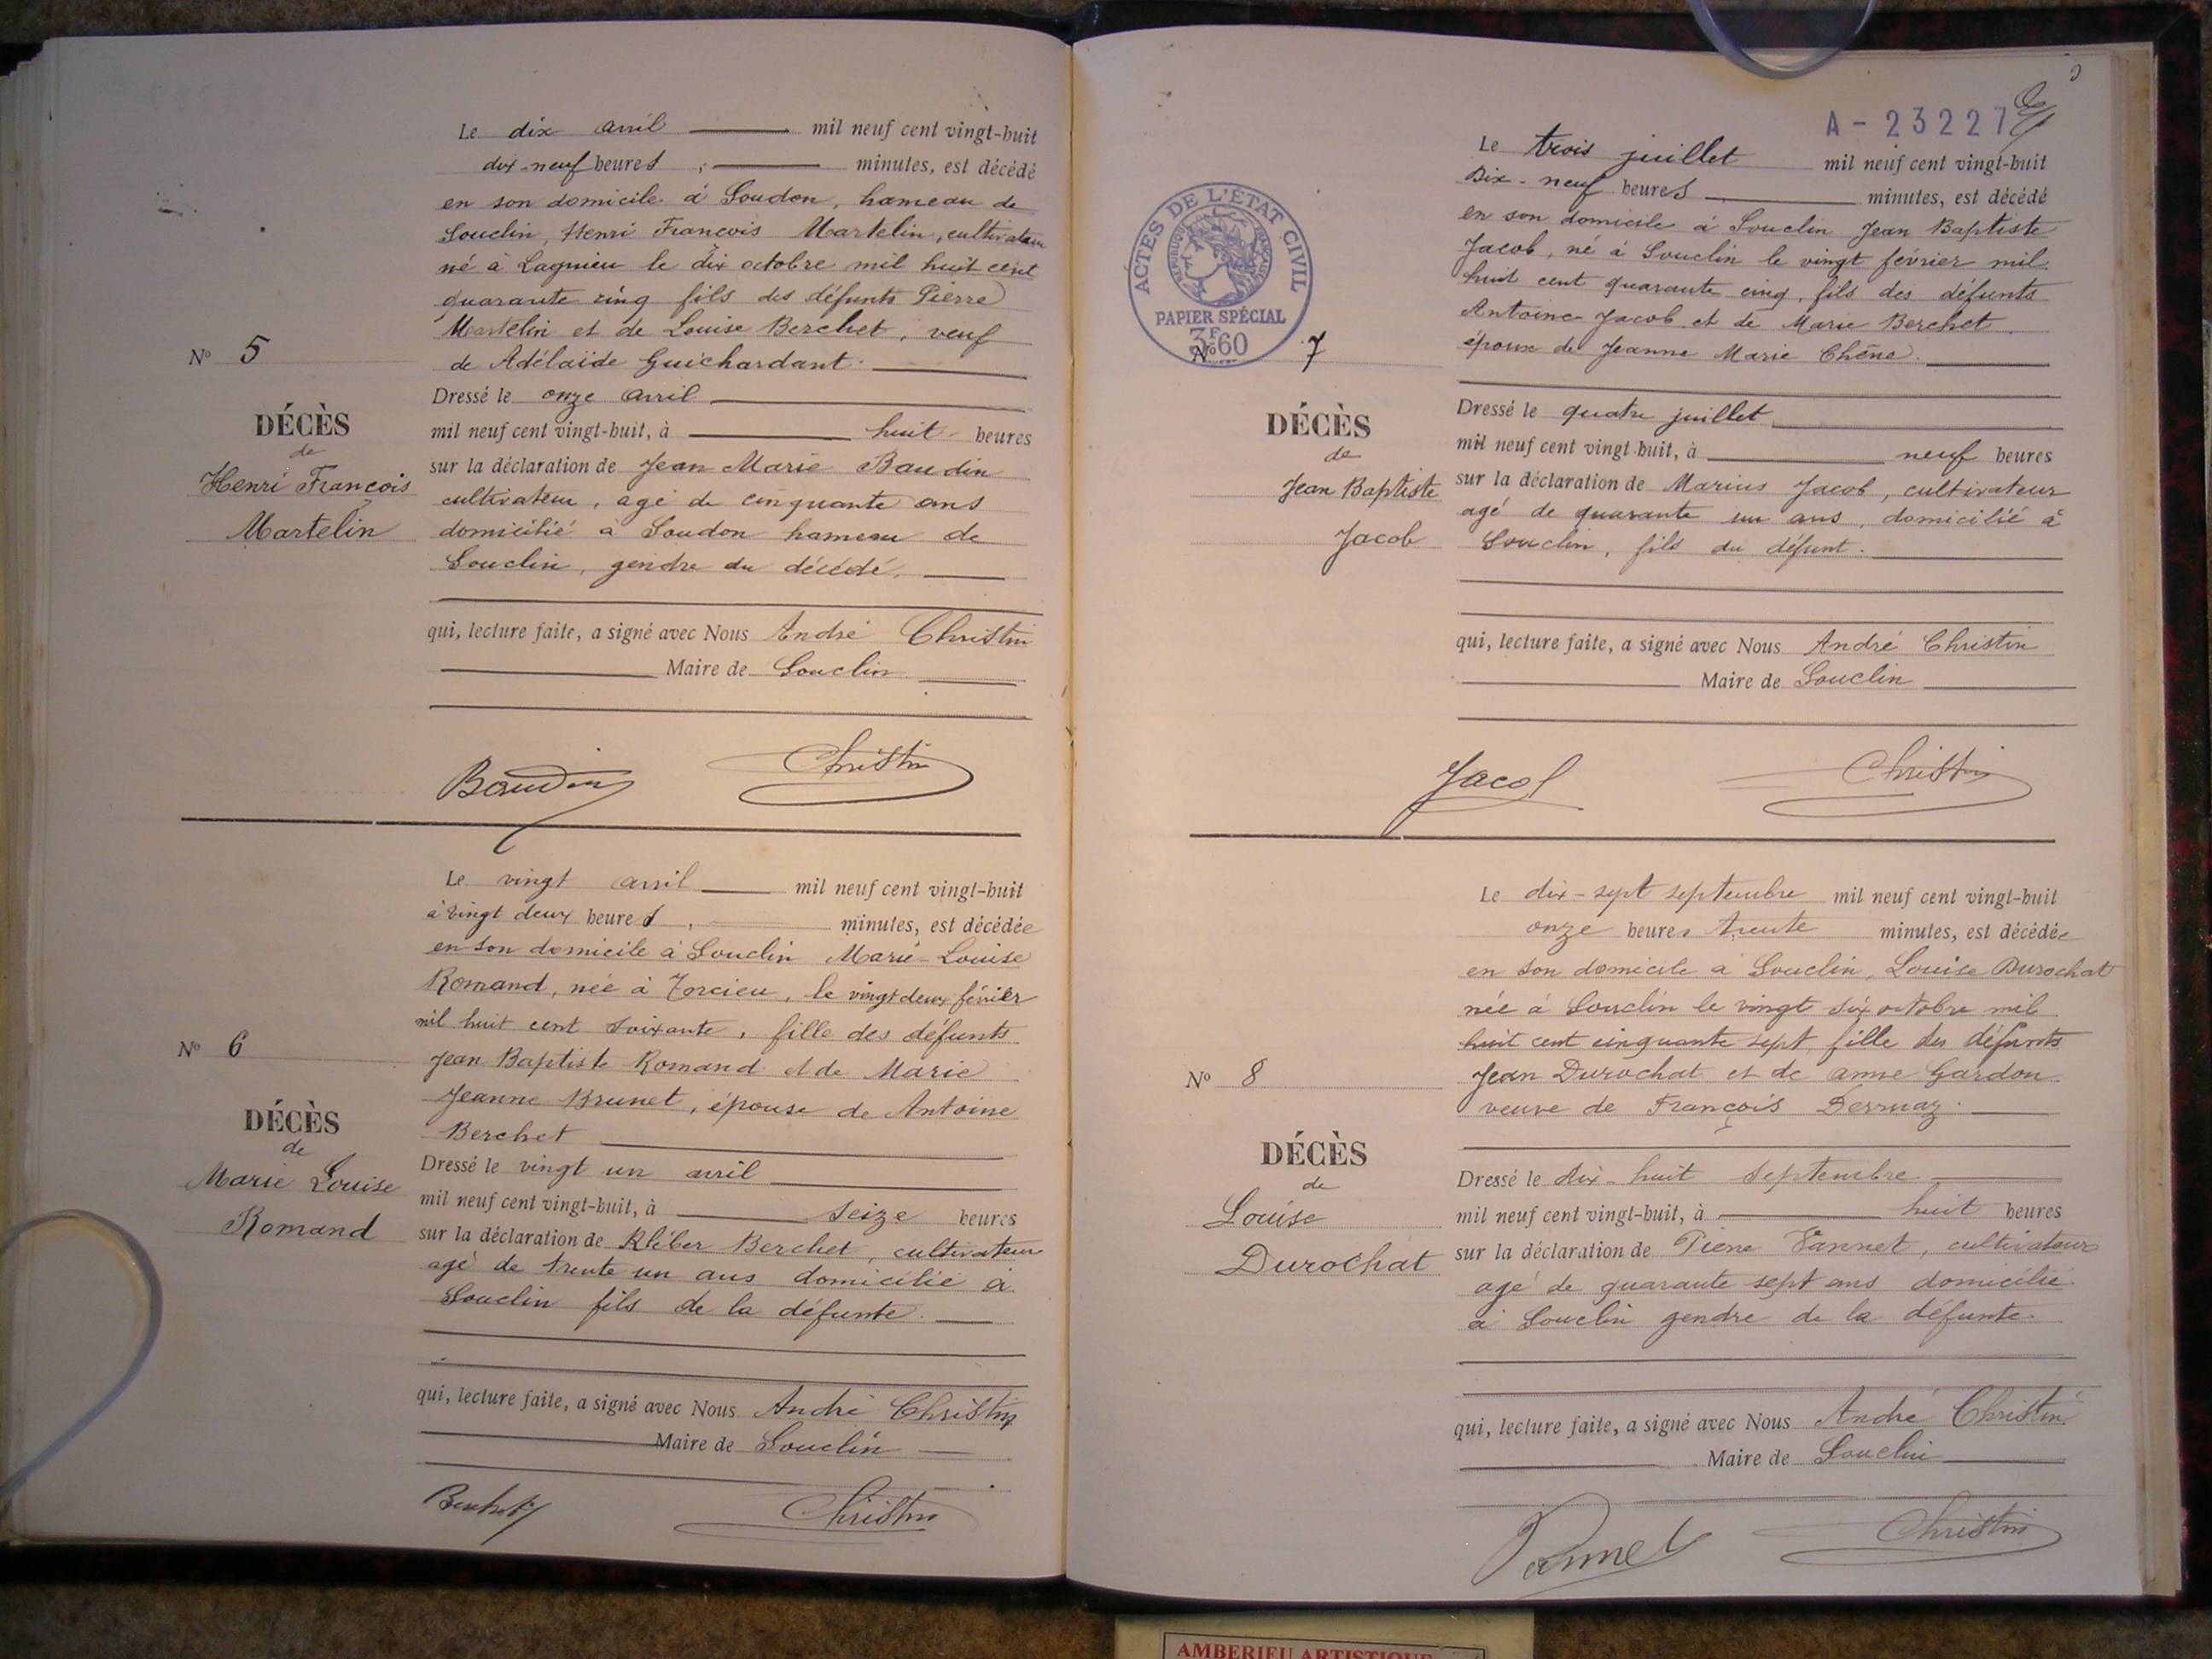 Le dix avril mil neuf cent vingt-huit
dix-neuf heures, minutes, est décédé
en son domicile à Soudon, hameau de
Souclin, Henri François Martelin, cultivateur
né à Lagnieu le dix octobre mil huit cent
quarante cinq fils des défunts Pierre
Martelin et de Louise Berchet, veuf
de Adélaïde Guichardant.
Nº 5
DÉCÈS
de
Henri François
Martelin
Dressé le onze avril
mil neuf cent vingt-huit, à huit heures
sur la déclaration de Jean Marie Baudin
cultivateur, agé de cinquante ans
domicilié à Soudon hameau de
Souclin, gendre du décédé.
qui, lecture faite, a signé avec Nous André Christin
Maire de Souclin
Baudin Christin
Le vingt avril mil neuf cent vingt-huit
à vingt deux heures, minutes, est décédée
en son domicile à Souclin Marie-Louise
Romand, née à Torcieu, le vingt deux février
mil huit cent soixante, fille des défunts
Jean Baptiste Romand et de Marie
Jeanne Brunet, épouse de Antoine
Berchet
Nº 6
DÉCÈS
de
Marie Louise
Romand
Dressé le vingt un avril
mil neuf cent vingt-huit, à seize heures
sur la déclaration de Kléber Berchet, cultivateur
agé de trente un ans domicilié à
Souclin fils de la défunte.
qui, lecture faite, a signé avec Nous André Christin
Maire de Souclin
Berchet Christin
A-23227
ACTES DE L'ÉTAT CIVIL
RÉPUBLIQUE FRANÇAISE
PAPIER SPÉCIAL
3F60
Le trois juillet mil neuf cent vingt-huit
Dix-neuf heures minutes, est décédé
en son domicile à Souclin Jean Baptiste
Jacob, né à Souclin le vingt février mil
huit cent quarante cinq, fils des défunts
Antoine Jacob et de Marie Berchet.
époux de Jeanne Marie Chêne.
Nº 7
DÉCÈS
de
Jean Baptiste
Jacob
Dressé le quatre juillet
mil neuf cent vingt-huit, à neuf heures
sur la déclaration de Marius Jacob, cultivateur
agé de quarante un ans, domicilié à
Souclin, fils du défunt.
qui, lecture faite, a signé avec Nous André Christin
Maire de Souclin
Jacob Christin
Le dix-sept septembre mil neuf cent vingt-huit
onze heures trente minutes, est décédée
en son domicile à Souclin, Louise Durochat
née à Souclin le vingt six octobre mil
huit cent cinquante sept, fille des défunts
Jean Durochat et de anne Gardon
veuve de François Dermaz.
Nº 8
DÉCÈS
de
Louise
Durochat
Dressé le dix-huit septembre
mil neuf cent vingt-huit, à huit heures
sur la déclaration de Pierre Vannet, cultivateur
agé de quarante sept ans domicilié
à Souclin gendre de la défunte.
qui, lecture faite, a signé avec Nous André Christin
Maire de Souclin
Vannet Christin
AMBERIEU ARTISTIQUE